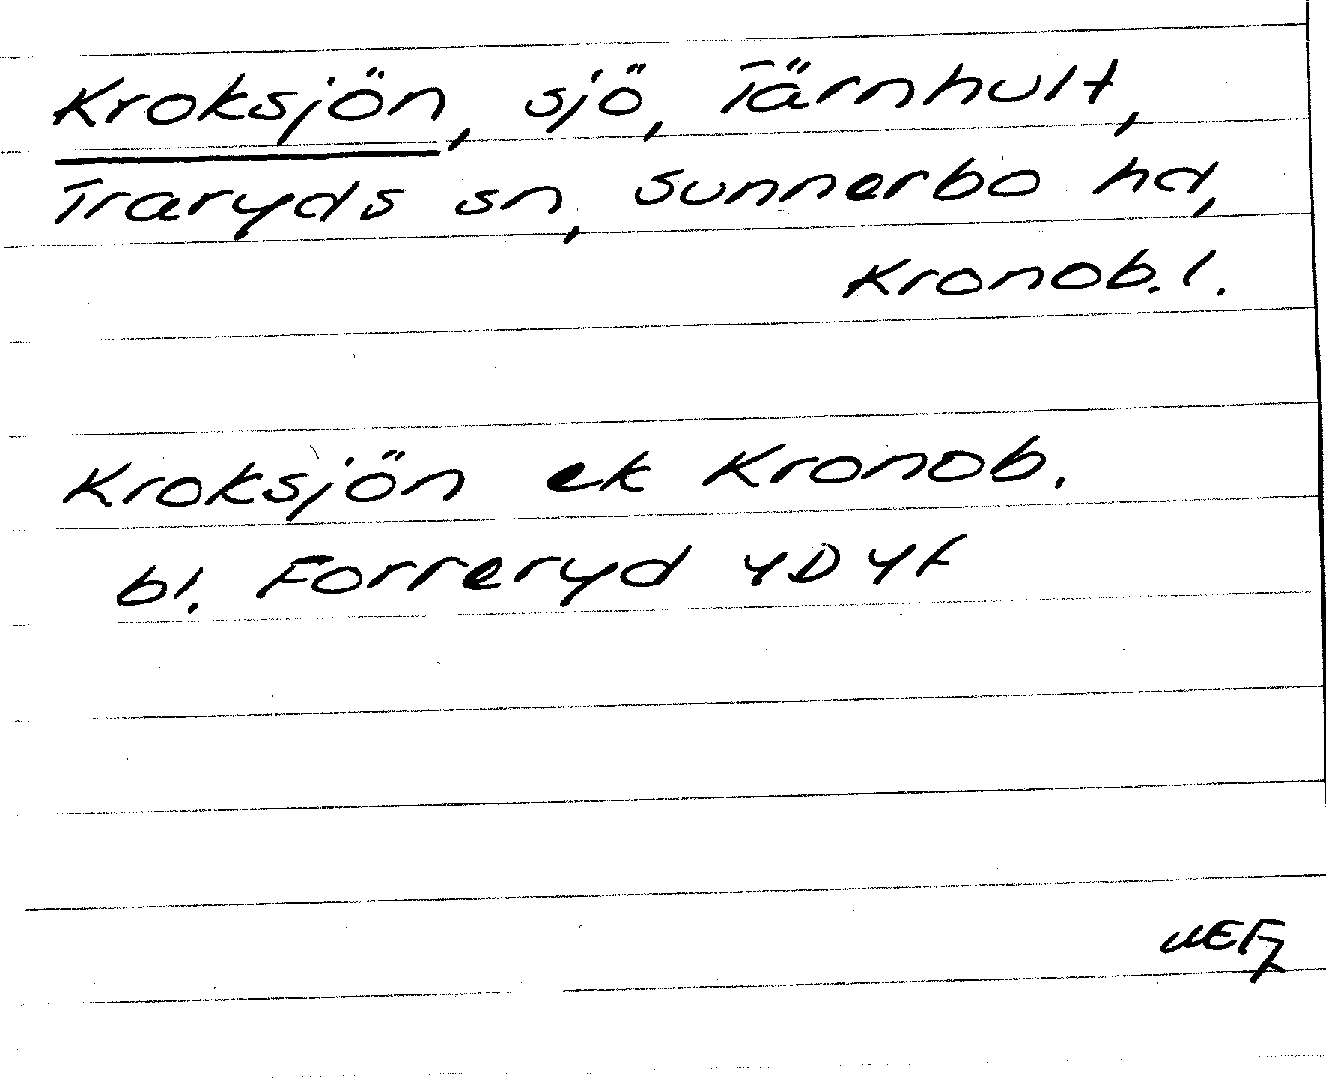 Kroksjön, sjö, Tärnhult,
Traryds sn, Sunnerbo hd,
Kronob. l.
Kroksjön ek Kronob.
bl. Forreryd 4D4f